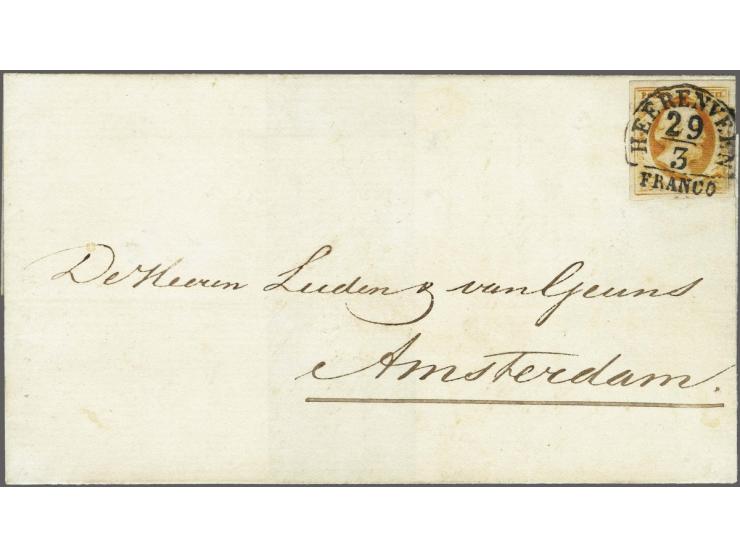 HEERENVEEN
29
3
FRANCO
De Heeren Luden & van Geuns
Amsterdam.